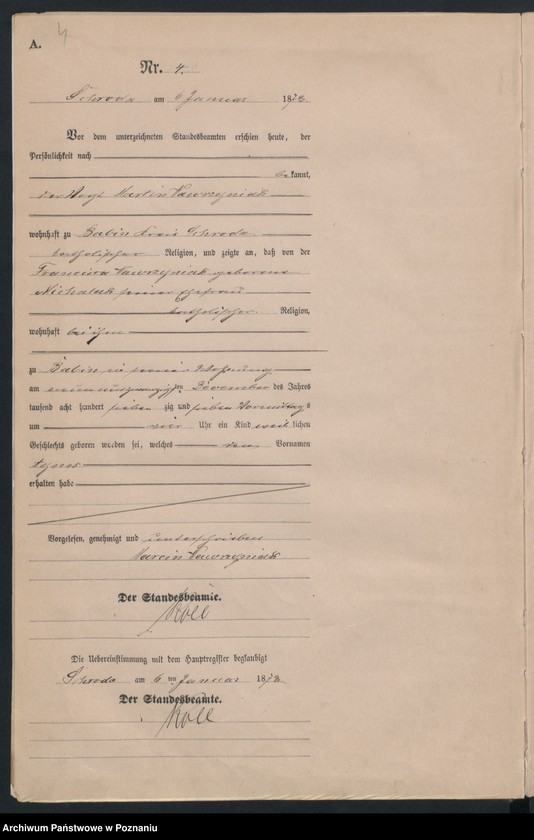 4
A.
Nr. 4.
Schroda am 6 Januar 1878
Vor dem unterzeichneten Standesbeamten erschien heute, der
Persönlichkeit nach
bekannt,
der Vogt Martin Wawrzyniak
wohnhaft zu Babin Kreis Schroda
katholischer Religion, und zeigte an, daß von der
Francisca Wawrzyniak geborene
Michalak seiner Ehefrau
katholischer Religion,
wohnhaft bei ihm
zu Babin in seiner Wohnung
am neunundzwanzigsten Dezember des Jahres
tausend acht hundert sieben zig und sieben Vormittags
um vier Uhr ein Kind weiblichen
Geschlechts geboren worden sei, welches den Vornamen
Agnes
erhalten habe
Vorgelesen, genehmigt und unterschrieben
Marcin Wawrzyniak
Der Standesbeamte.
Die Uebereinstimmung mit dem Hauptregister beglaubigt
Schroda am 6ten Januar 1878
Der Standesbeamte.
Archiwum Państwowe w Poznaniu